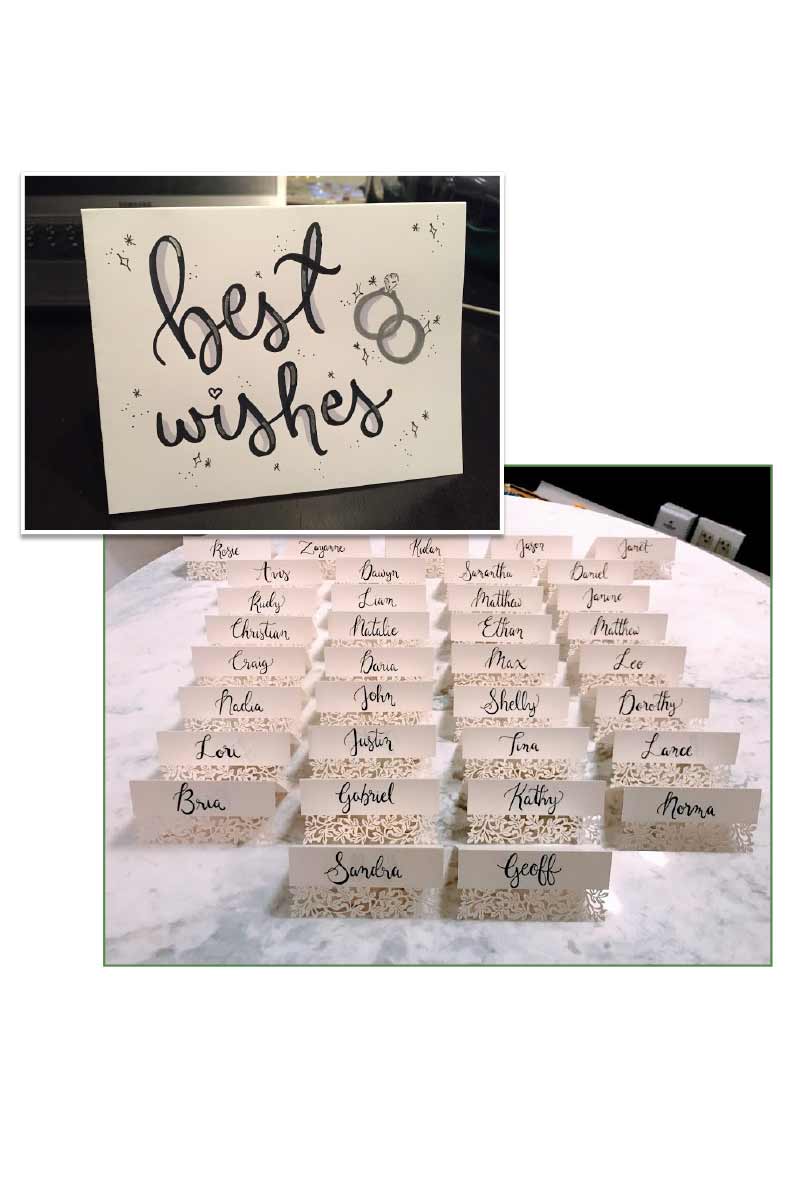 best
wishes
Rosie Zayanne Kidan Jason Janet
Avis Dawyn Samantha Daniel
Rudy Liam Matthew Janine
Christian Natalie Ethan Matthew
Craig Daria Max Leo
Nadia John Shelly Dorothy
Lori Justin Tina Lance
Bria Gabriel Kathy Norma
Sandra Geoff